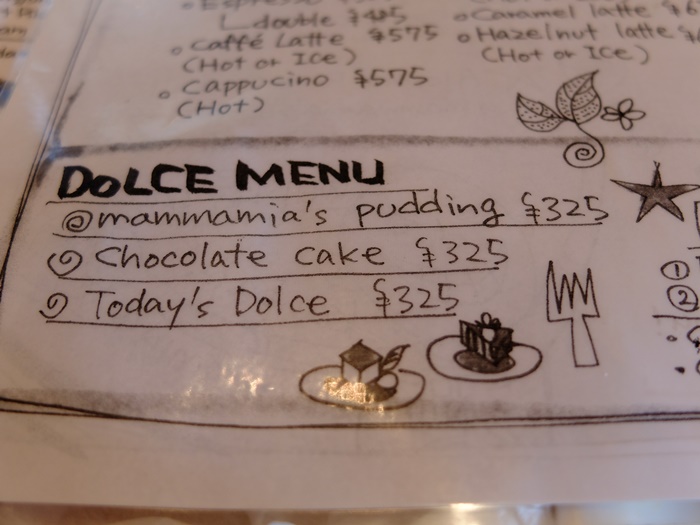 double
Caramel latte
Caffé Latte $575
Hazelnut latte
(Hot or Ice)
(Hot or Ice)
Cappuccino $575
(Hot)
DOLCE MENU
mammamia's pudding $325
Chocolate cake $325
Today's Dolce $325
①
②